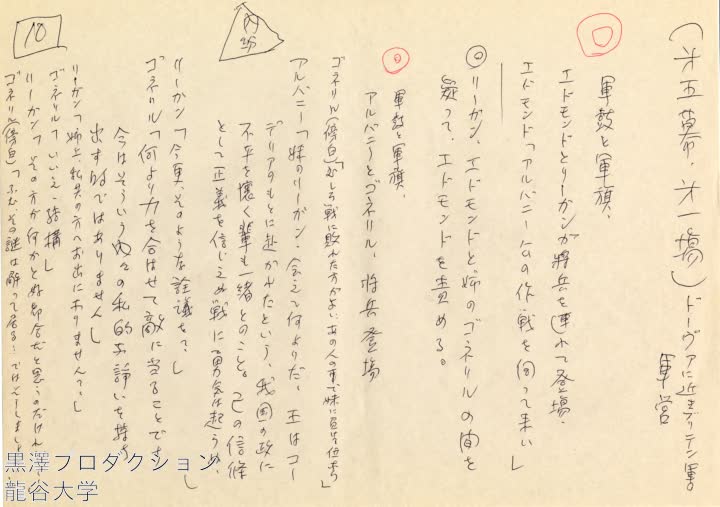 （才五幕・才一場）ドーヴァに近きブリテン軍
軍営
軍鼓と軍旗、
エドモンドとリーガンが将兵を連れて登場・
エドモンド「アルバニー公の作戦を伺って来い」
◎リーガン、エドモンドと姉のゴネリルの間を
疑って、エドモンドを責める。
軍鼓と軍旗、
アルバニーとゴネリル、将兵登場
ゴネリル（傍白）「むしろ戦に敗れた方がよい、あの人の事で妹に
アルバニー「妹のリーガン・会えて何よりだ、王はコー
デリアのもとに赴かれたという、我国の政に
不平を懐く輩も一緒とのこと。己の信條
として正義を信じえぬ戦に勇気は起らぬ、
リーガン「今更、そのような詮議を？」
ゴネリル「何より力を合はせて敵に当ることです
今はそういう内々の私的な諍いを持ち
出す時ではありません」
リーガン「姉上、私共の方へお出になりません？」
ゴネリル「いいえ・結構」
リーガン「その方が何かと好都合だと思うのだけれど
ゴネリル（傍白）「ふむ、その謎は解って居る：
内部
10
黒澤プロダクション
龍谷大学